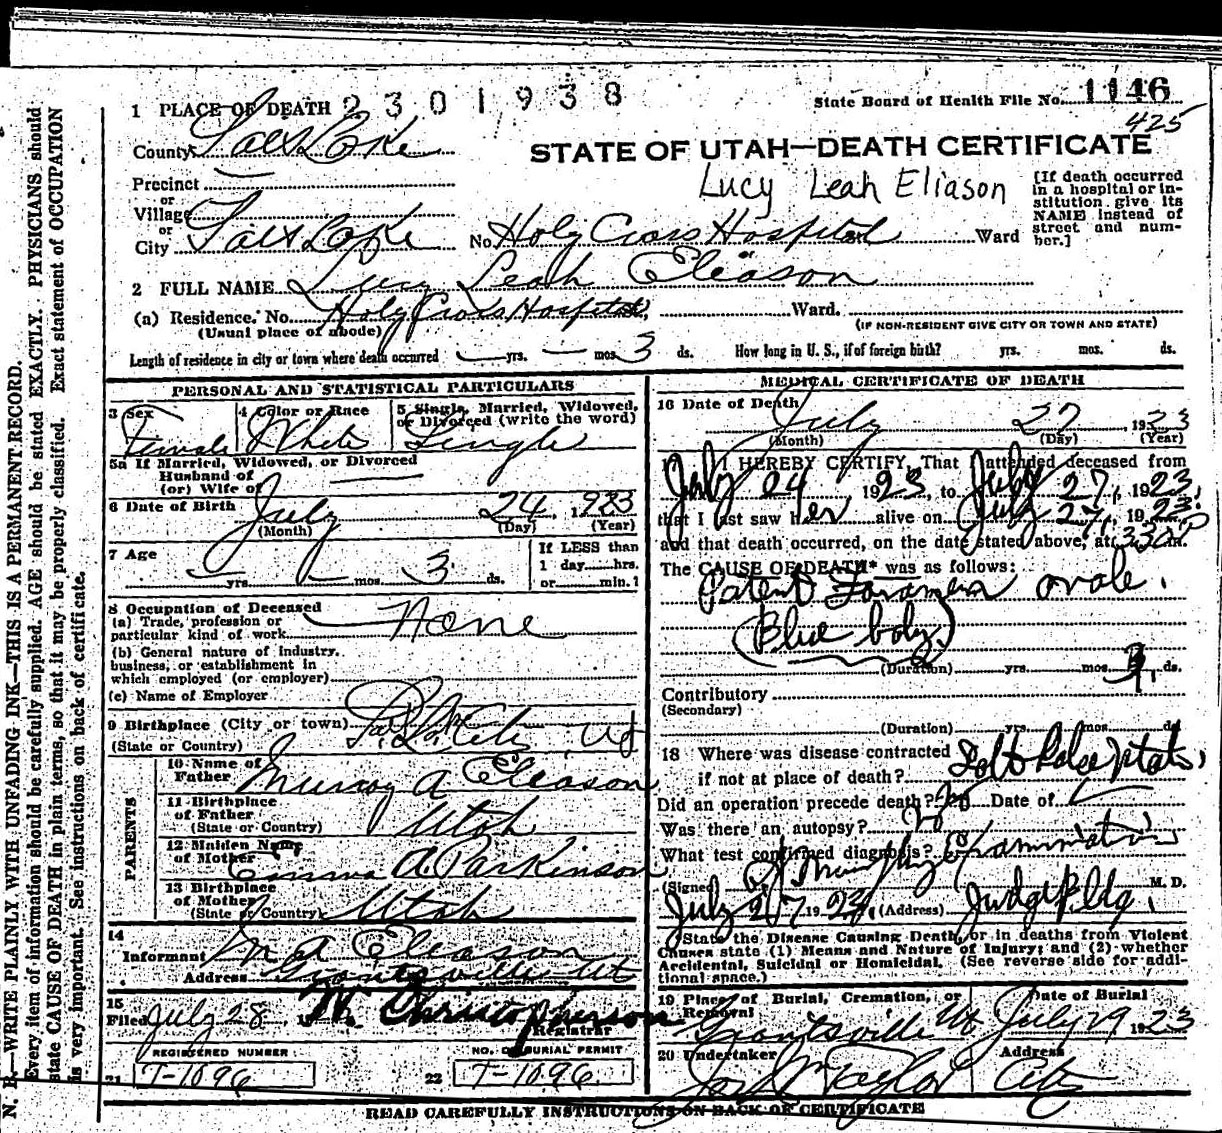 1 PLACE OF DEATH 2301938
State Board of Health File No. 1146
425
County Salt Lake
STATE OF UTAH—DEATH CERTIFICATE
Precinct
or
Village
or
City Salt Lake No. Holy Cross Hospital St. Ward
Lucy Leah Eliason
[If death occurred
in a hospital or in-
stitution give its
NAME instead of
street and num-
ber.]
2 FULL NAME Lucy Leah Eliason
(a) Residence. No. Holy Cross Hospital, Ward.
(Usual place of abode)
(IF NON-RESIDENT GIVE CITY OR TOWN AND STATE)
Length of residence in city or town where death occurred — yrs. — mos. 3 ds. How long in U. S., if of foreign birth? yrs. mos. ds.
PERSONAL AND STATISTICAL PARTICULARS
3 Sex
Female
4 Color or Race
White
5 Single, Married, Widowed,
or Divorced (write the word)
Single
5a If Married, Widowed, or Divorced
Husband of
(or) Wife of
6 Date of Birth July 24, 1923
(Month) (Day) (Year)
7 Age
— yrs. mos. 3 ds.
If LESS than
1 day hrs.
or min.?
8 Occupation of Deceased
(a) Trade, profession or
particular kind of work None
(b) General nature of industry,
business, or establishment in
which employed (or employer)
(c) Name of Employer
9 Birthplace (City or town)
(State or Country) Sa. La. City, Ut
PARENTS
10 Name of
Father Murray A Eliason
11 Birthplace
of Father
(State or Country) Utah
12 Maiden Name
of Mother Emma A. Parkinson
13 Birthplace
of Mother
(State or Country) Utah
14
Informant M A Eliason
Address Grantsville Ut
15
Filed July 28, 19 W. Christopherson
Registrar
REGISTERED NUMBER NO. OF BURIAL PERMIT
21 T-1096 22 T-1096
MEDICAL CERTIFICATE OF DEATH
16 Date of Death July 27 1923
(Month) (Day) (Year)
I HEREBY CERTIFY, That I attended deceased from
July 24 1923, to July 27, 1923,
that I last saw her alive on July 27, 1923
and that death occurred, on the date stated above, at 330P m.
The CAUSE OF DEATH* was as follows:
Patent Foramen ovale.
(Blue baby)
(Duration) yrs. mos. ds.
Contributory
(Secondary)
(Duration) yrs. mos. ds.
18 Where was disease contracted
if not at place of death?
Did an operation precede death? No Date of
Was there an autopsy? No
What test confirmed diagnosis? Examination
(Signed) M. D.
July 27 1923 (Address) Judge Bldg.
State the Disease Causing Death, or in deaths from Violent
Causes state (1) Means and Nature of Injury; and (2) whether
Accidental, Suicidal or Homicidal. (See reverse side for addi-
tional space.)
19 Place of Burial, Cremation, or
Removal
Grantsville Ut
Date of Burial
July 29 1923
20 Undertaker Address
Jos Wm Taylor City
READ CAREFULLY INSTRUCTIONS ON BACK OF CERTIFICATE
N. B.—WRITE PLAINLY WITH UNFADING INK—THIS IS A PERMANENT RECORD.
Every item of information should be carefully supplied. AGE should be stated EXACTLY. PHYSICIANS should
state CAUSE OF DEATH in plain terms, so that it may be properly classified. Exact statement of OCCUPATION
is very important. See instructions on back of certificate.